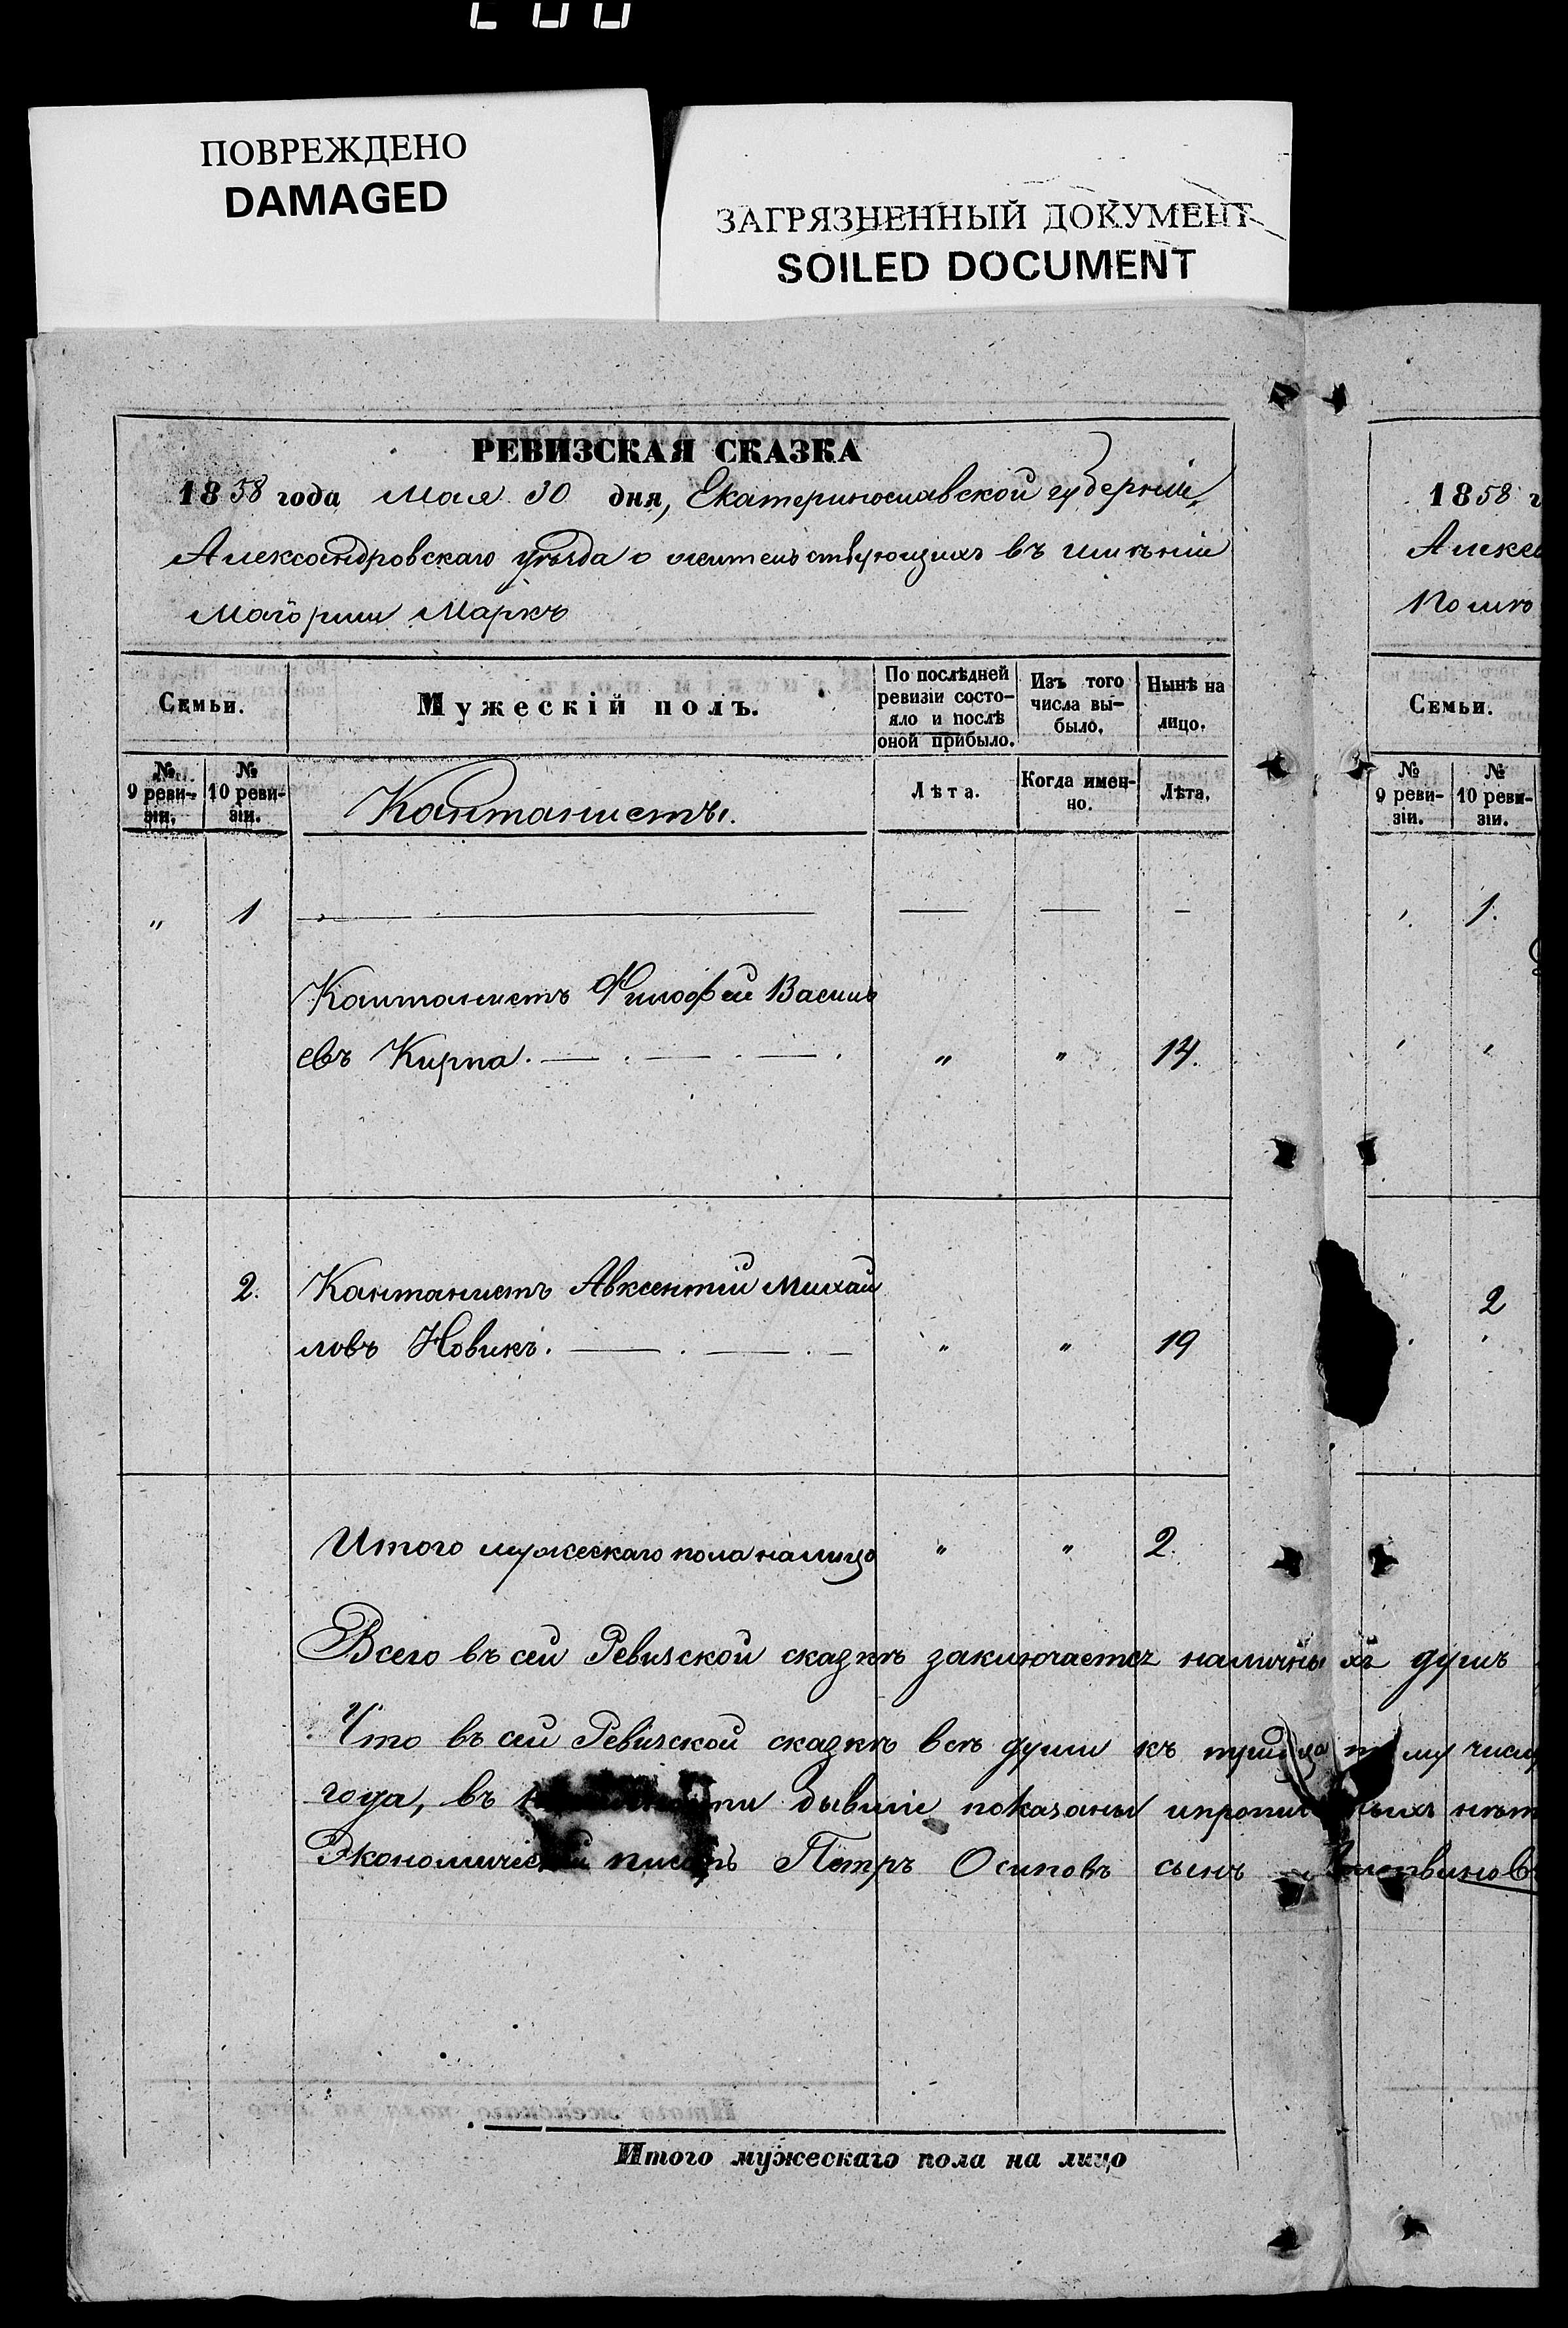 ПОВРЕЖДЕНО
DAMAGED
ЗАГРЯЗНЕННЫЙ ДОКУМЕНТ
SOILED DOCUMENT
РЕВИЗСКАЯ СКАЗКА
1858 года Мая 30 дня, Екатеринославской губерніи,
Александровскаго уѣзда о жительствующихъ въ имѣніи
Маіорши Маркъ
Семьи.
Мужескій полъ.
По послѣдней ревизіи состо-
яло и послѣ оной прибыло.
Изъ того числа вы-
было.
Нынѣ на лицо.
№ 9 реви-
зіи.
№ 10 реви-
зіи.
Кантанисты.
Лѣта.
Когда имен-
но.
Лѣта.
" 1
Кантанистъ Филофей Василь
евъ Кирпа. " " 14.
2. Кантанистъ Авксентій Михай
ловъ Новикъ. " " 19
Итого мужескаго пола налицо " " 2.
Всего въ сей Ревизской сказкѣ заключается наличныхъ душъ
Что въ сей Ревизской сказкѣ всѣ души къ числу
года, въ бывшіе показаны нѣт
Экономическій писарь Петръ Осиповъ сынъ
Итого мужескаго пола на лицо
1858 г
Алекса
Помѣ
Семьи.
№ 9 реви-
зіи.
№ 10 реви-
зіи.
1.
2